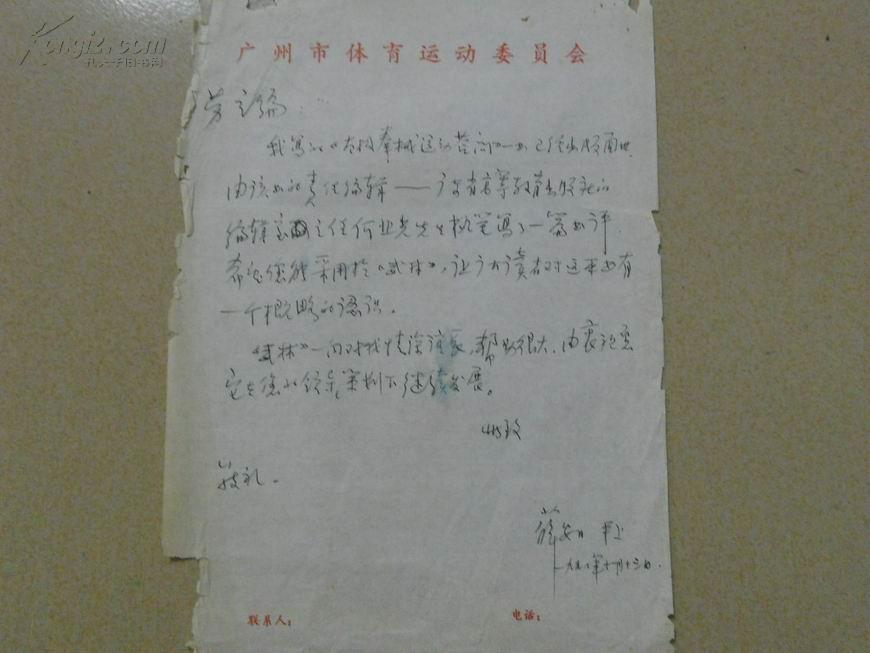 Kongfz.com
孔夫子旧书网
广州市体育运动委员会
劳主编：
我写的《太极拳械运动荟萃》一书已经出版面世
由该书的责任编辑——广东省高等教育出版社的
编辑室主任何业光先生执笔写了一篇书评
希望您能采用于《武林》，让广大读者对这本书有
一个概略的认识。
《武林》一向对我情深谊长，帮助很大，由衷祝愿
它在您的领导、策划下继续发展。
此致
敬礼。
上
一九九八年十一月十三日.
联系人：
电话：